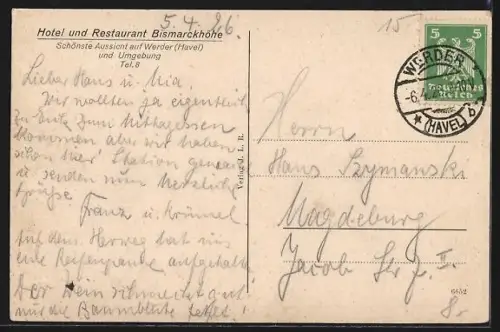 5.4.26
15
Hotel und Restaurant Bismarckhöhe
Schönste Aussicht auf Werder (Havel)
und Umgebung
Tel. 8
Lieber Hans u. Mia,
Wir wollten ja eigentlich
zu Euch zum Mittagessen
kommen aber wir haben
schon hier Station gemacht
u. senden nun herzliche
Grüße.
Franz u. Krümel
Auf dem Herweg hat uns
eine Reifenpanne aufgehalten
Der Wein schmeckt gut
nur die Baumblüte fehlt!
Verlag J. L. R.
5 5
Deutsches
Reich
WERDER
-6.4.
* (HAVEL) b
Herrn
Hans Szymanski
Magdeburg
Jacob Str. II.
8.-